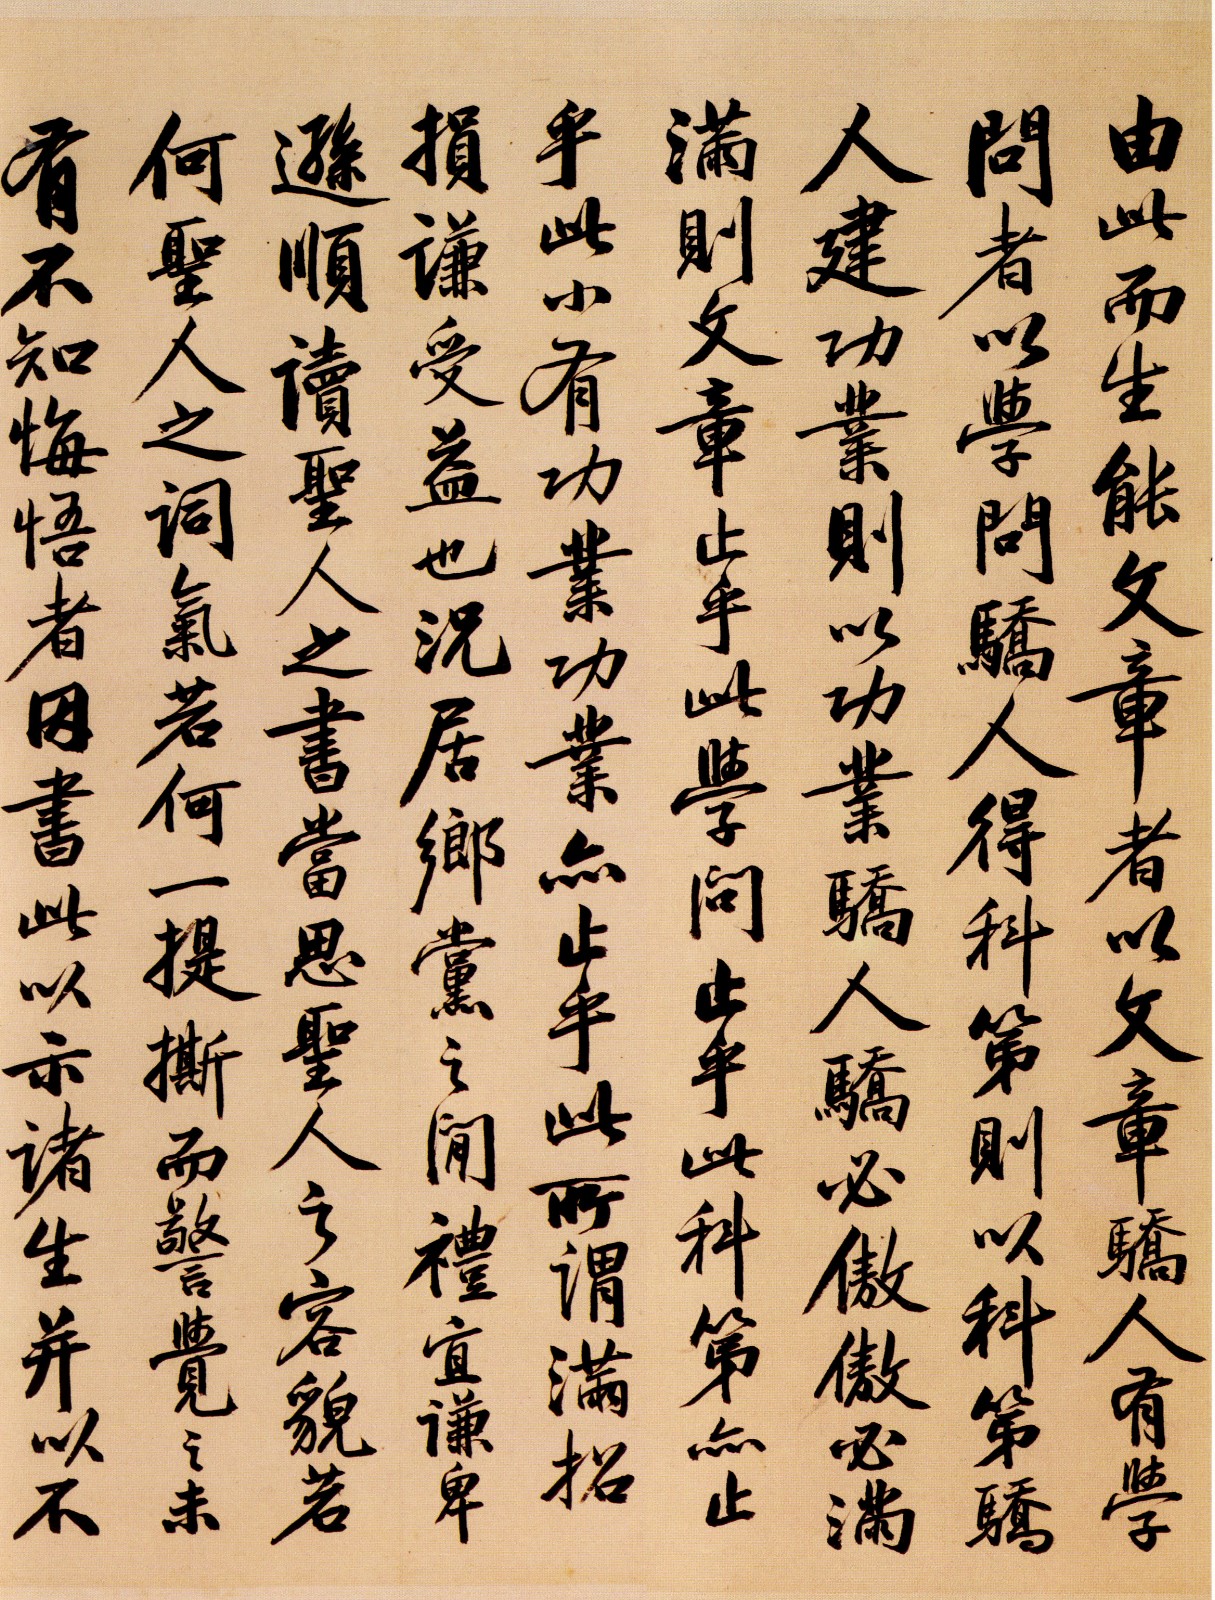 由此而生能文章者以文章驕人有學
問者以學問驕人得科第則以科第驕
人建功業則以功業驕人驕必傲傲必滿
滿則文章止乎此學問止乎此科第亦止
乎此小有功業功業亦止乎此所謂滿招
損謙受益也況居鄉黨之間禮宜謙卑
遜順讀聖人之書當思聖人之容貌若
何聖人之詞氣若何一提撕而警覺之未
有不知悔悟者因書此以示諸生并以不